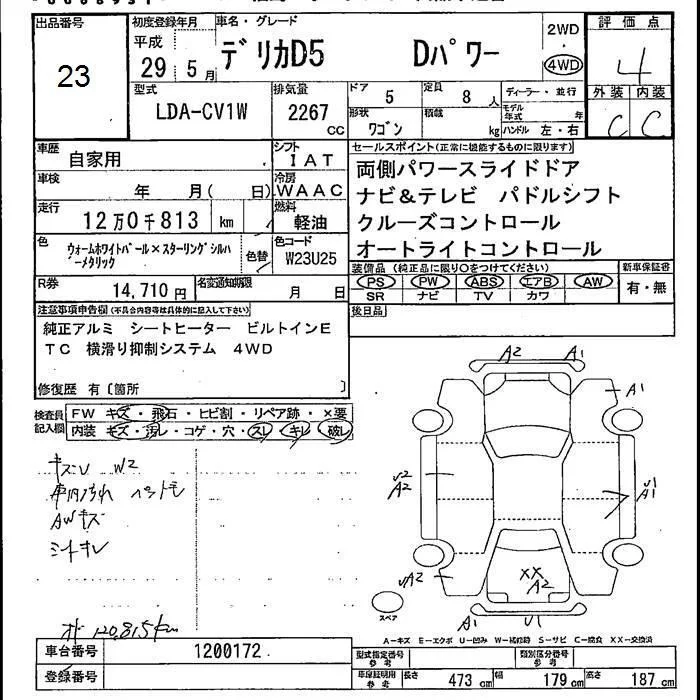 出品番号 23
初度登録年月 平成 29 5月
車名・グレード
デリカD5 Dパワー
2WD
・
4WD
評価点 4
外装 内装
C C
型式 LDA-CV1W
排気量 2267 CC
ドア 5
定員 8 人
ディーラー・並行
形状 ワゴン
積載 kg
モデル年式 年
ハンドル 左・右
車歴 自家用
シフト IAT
車検 年 月( 日)
冷房 WAAC
走行 12万0千813 km
燃料 軽油
色 ウォームホワイトパール×スターリングシルバーメタリック
色替
色コード W23U25
R券 14,710円
名変通知期限 月 日
セールスポイント(正常に機能するものに限ります)
両側パワースライドドア
ナビ&テレビ パドルシフト
クルーズコントロール
オートライトコントロール
装備品 (純正品に限り○をつけてください)
PS PW ABS エアB AW
SR ナビ TV カワ
新車保証書
有・無
後日品
注意事項申告欄(不具合内容等は具体的に記入して下さい)
純正アルミ シートヒーター ビルトインE
TC 横滑り抑制システム 4WD
修復歴 有〔箇所 〕
検査員記入欄
FW キズ・飛石・ヒビ割・リペア跡・×要
内装 キズ・汚レ・コゲ・穴・スレ・キレ・破レ
キズU W2
車内汚れ ペットモ
AWキズ
シートキレ
オド 120,815km
A2 A1
A1
U2
A2
U1
A1
UA2
XX
A2
A1 U1
スペア
A-キズ E-エクボ U-凹み W-補修跡 S-サビ C-腐食 XX-交換済
車台番号 1200172
登録番号
型式指定番号 参考
類別区分番号 参考
車庫証明用 参考
長さ 473 cm
幅 179 cm
高さ 187 cm